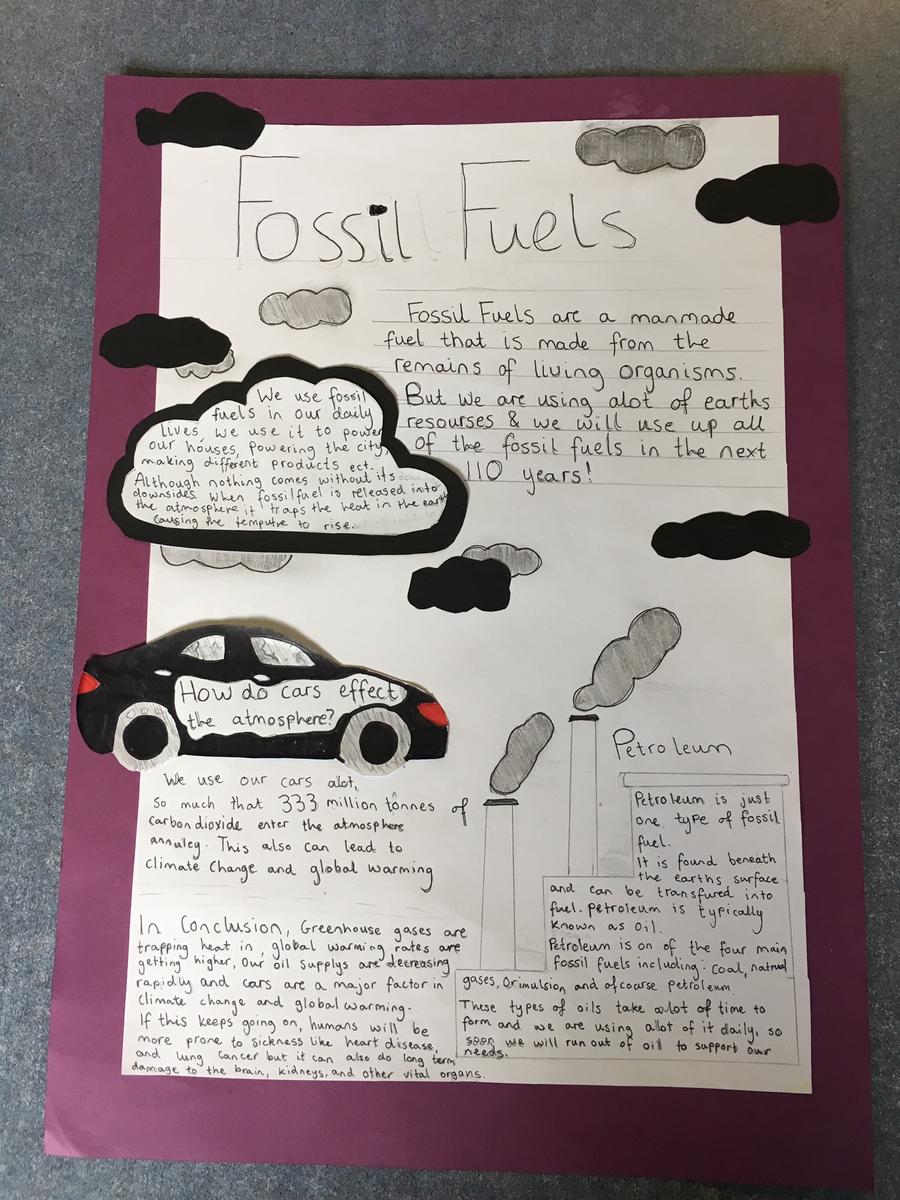 Fossil Fuels
Fossil Fuels are a manmade
fuel that is made from the
remains of living organisms.
But we are using alot of earths
resourses & we will use up all
of the fossil fuels in the next
110 years!
We use fossil
fuels in our daily
lives, we use it to power
our houses, powering the city,
making different products ect.
Although nothing comes without its
downsides. When fossilfuel is released into
the atmosphere it traps the heat in the earth
Causing the temputre to rise.
How do cars effect
the atmosphere?
We use our cars alot,
So much that 333 million tonnes of
carbondioxide enter the atmosphere
annuley. This also can lead to
climate Change and global warming
In Conclusion, Greenhouse gases are
trapping heat in, global warming rates are
getting higher, Our oil supplys are decreasing
rapidly and cars are a major factor in
Climate change and global warming.
If this keeps going on, humans will be
more prone to sickness like heart disease,
and lung cancer but it can also do long term
damage to the brain, kidneys, and other vital organs.
Petroleum
Petroleum is just
one type of fossil
fuel.
It is found beneath
the earths surface
and can be transfured into
fuel. Petroleum is typically
known as Oil.
Petroleum is on of the four main
fossil fuels including: Coal, natural
gases, Orimulsion and ofcourse petroleum.
These types of oils take alot of time to
form and we are using allot of it daily, so
soon we will run out of oil to support our
needs.